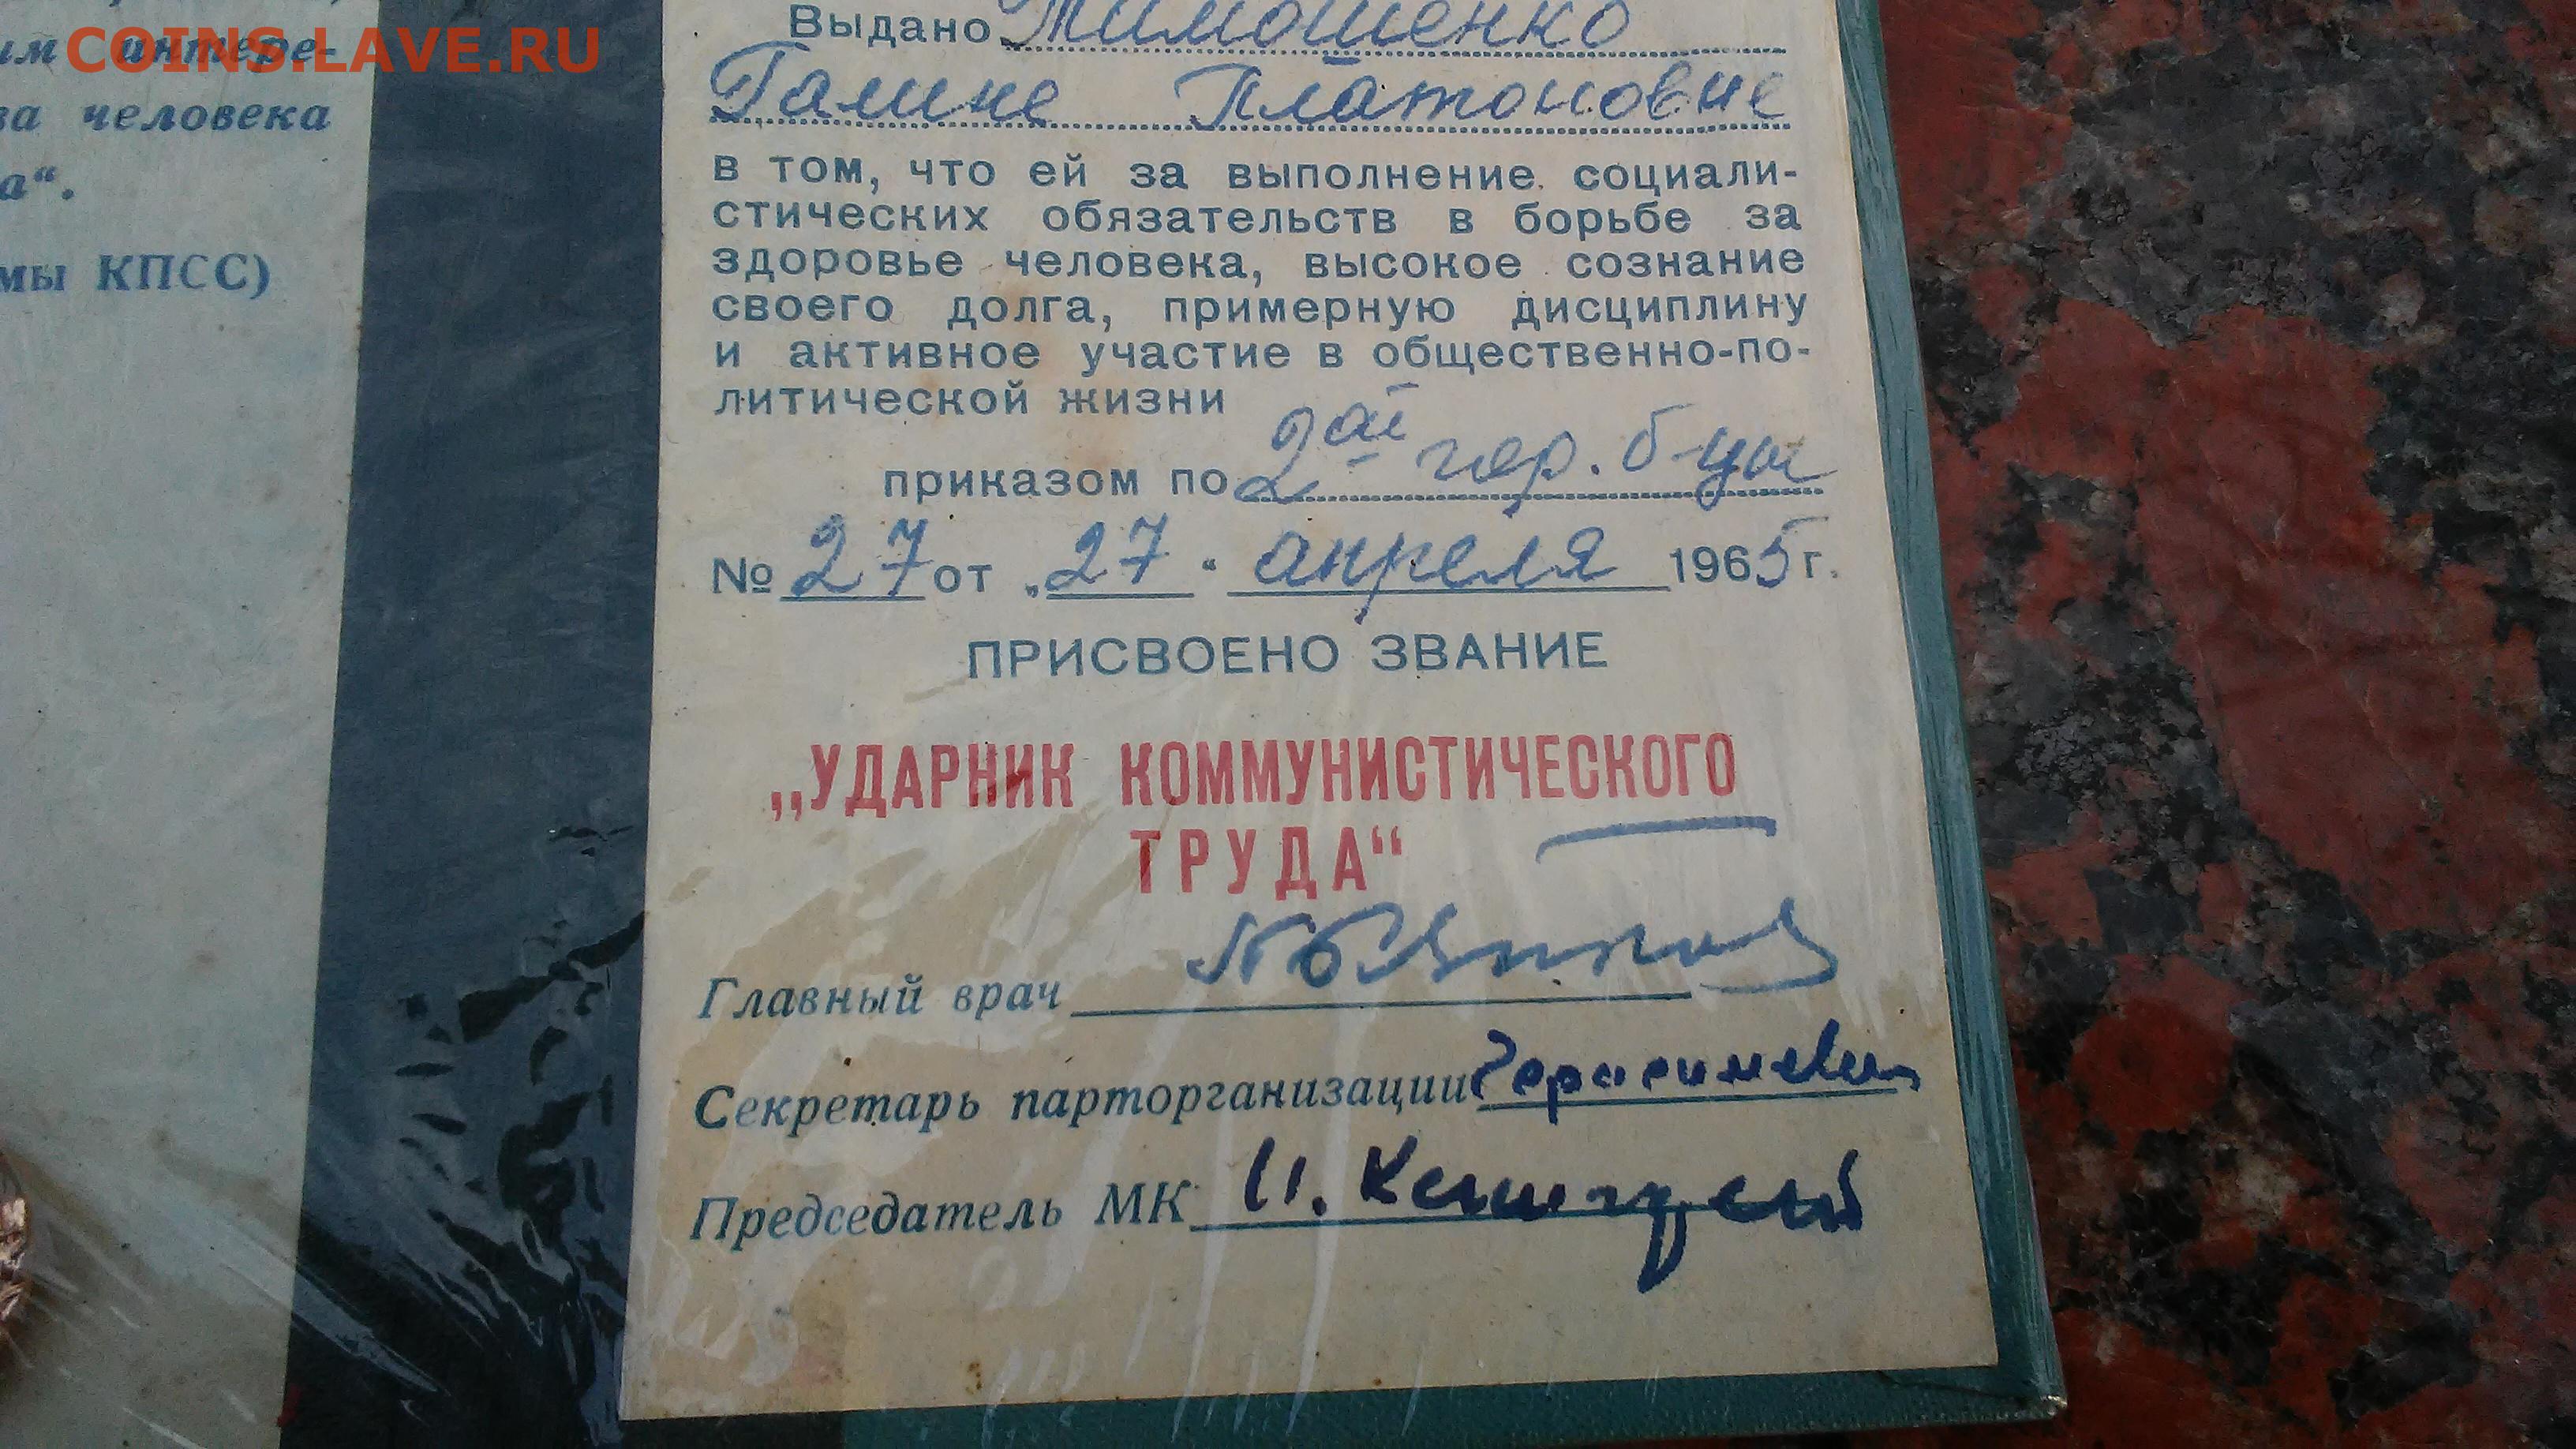 COINS.LAVE.RU
им интере-
ва человека
а“.
мы КПСС)
Выдано Тимошенко
Галине Платоновне
в том, что ей за выполнение социали-
стических обязательств в борьбе за
здоровье человека, высокое сознание
своего долга, примерную дисциплину
и активное участие в общественно-по-
литической жизни
приказом по 2ой гор. б-цы
№ 27 от „27“ апреля 1965 г.
ПРИСВОЕНО ЗВАНИЕ
„УДАРНИК КОММУНИСТИЧЕСКОГО
ТРУДА“
Главный врач
Секретарь парторганизации
Председатель МК И.